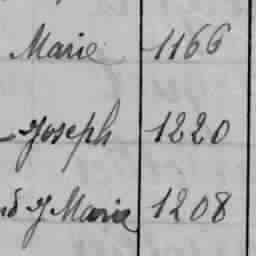 Marie 1166
Joseph 1220
J Marie 1208